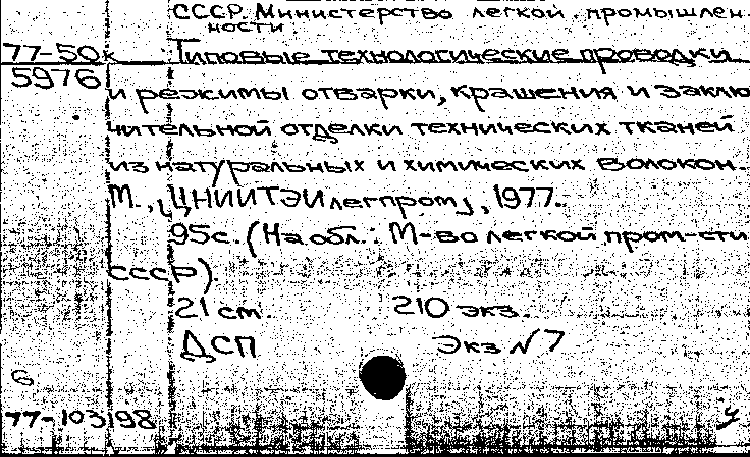 СССР. Министерство легкой промышлен-
ности.
77-50к Типовые технологические проводки
5976 и режимы отварки, крашения и заклю
чительной отделки технических тканей
из натуральных и химических волокон.
М., "ЦНИИТЭИлегпром", 1977.
95с. (На обл.: М-во легкой пром-сти
СССР).
21 см. 210 экз.
ДСП Экз N7
6
77-103198 у